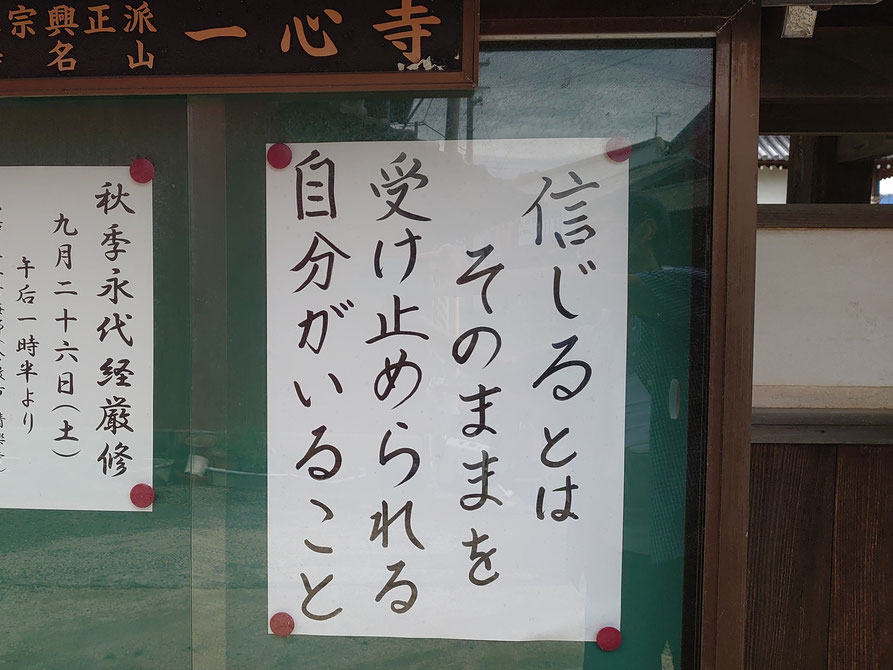 一心寺
宗 正派
興山
名
信じるとは
そのままを
受け止められる
自分がいること
秋季永代経厳修
九月二十六日(土)
午后一時半より